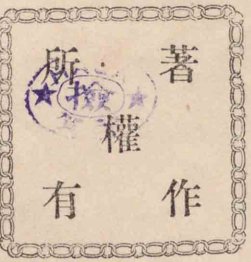 著作權所有
檢